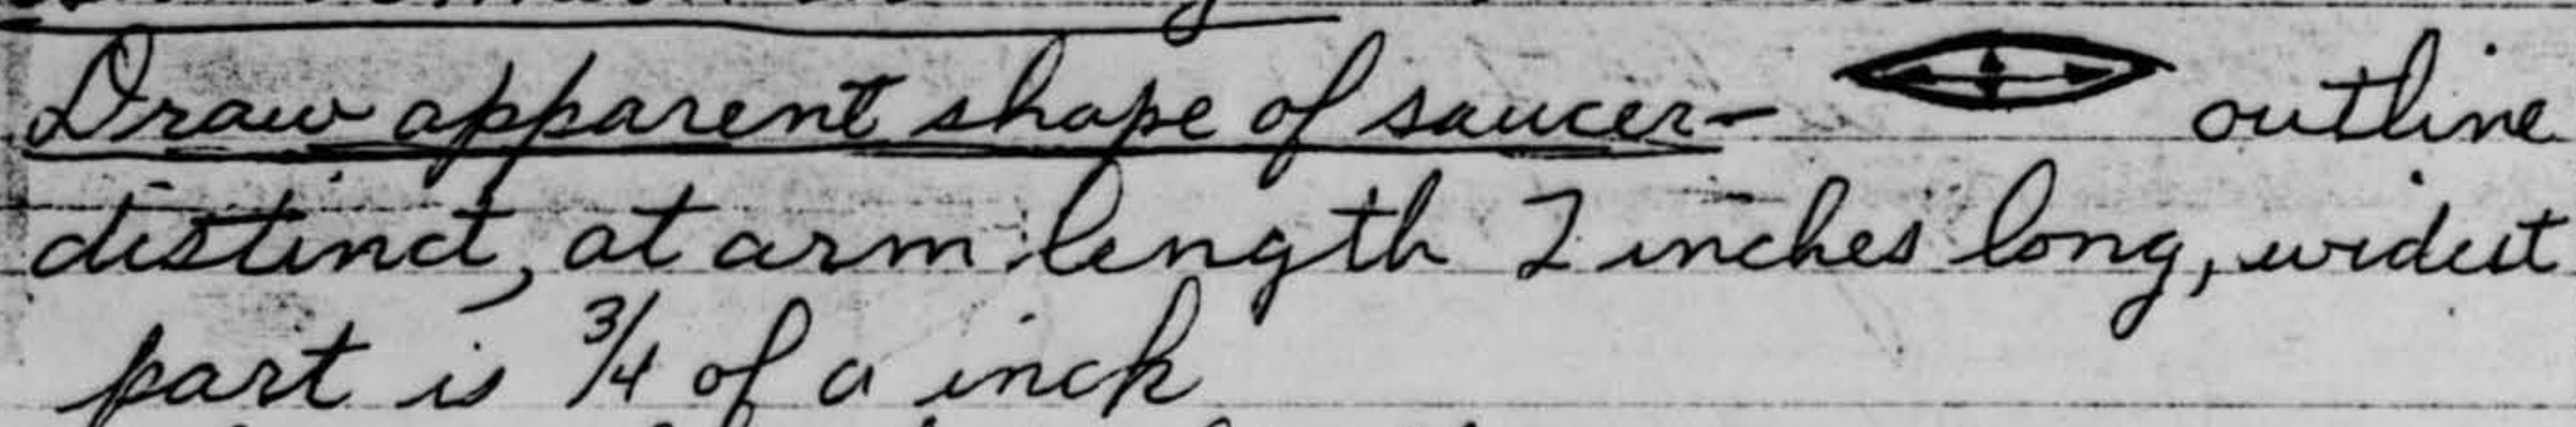 Draw apparent shape of saucer- outline
distinct, at arm length 2 inches long, widest
part is 3/4 of a inch